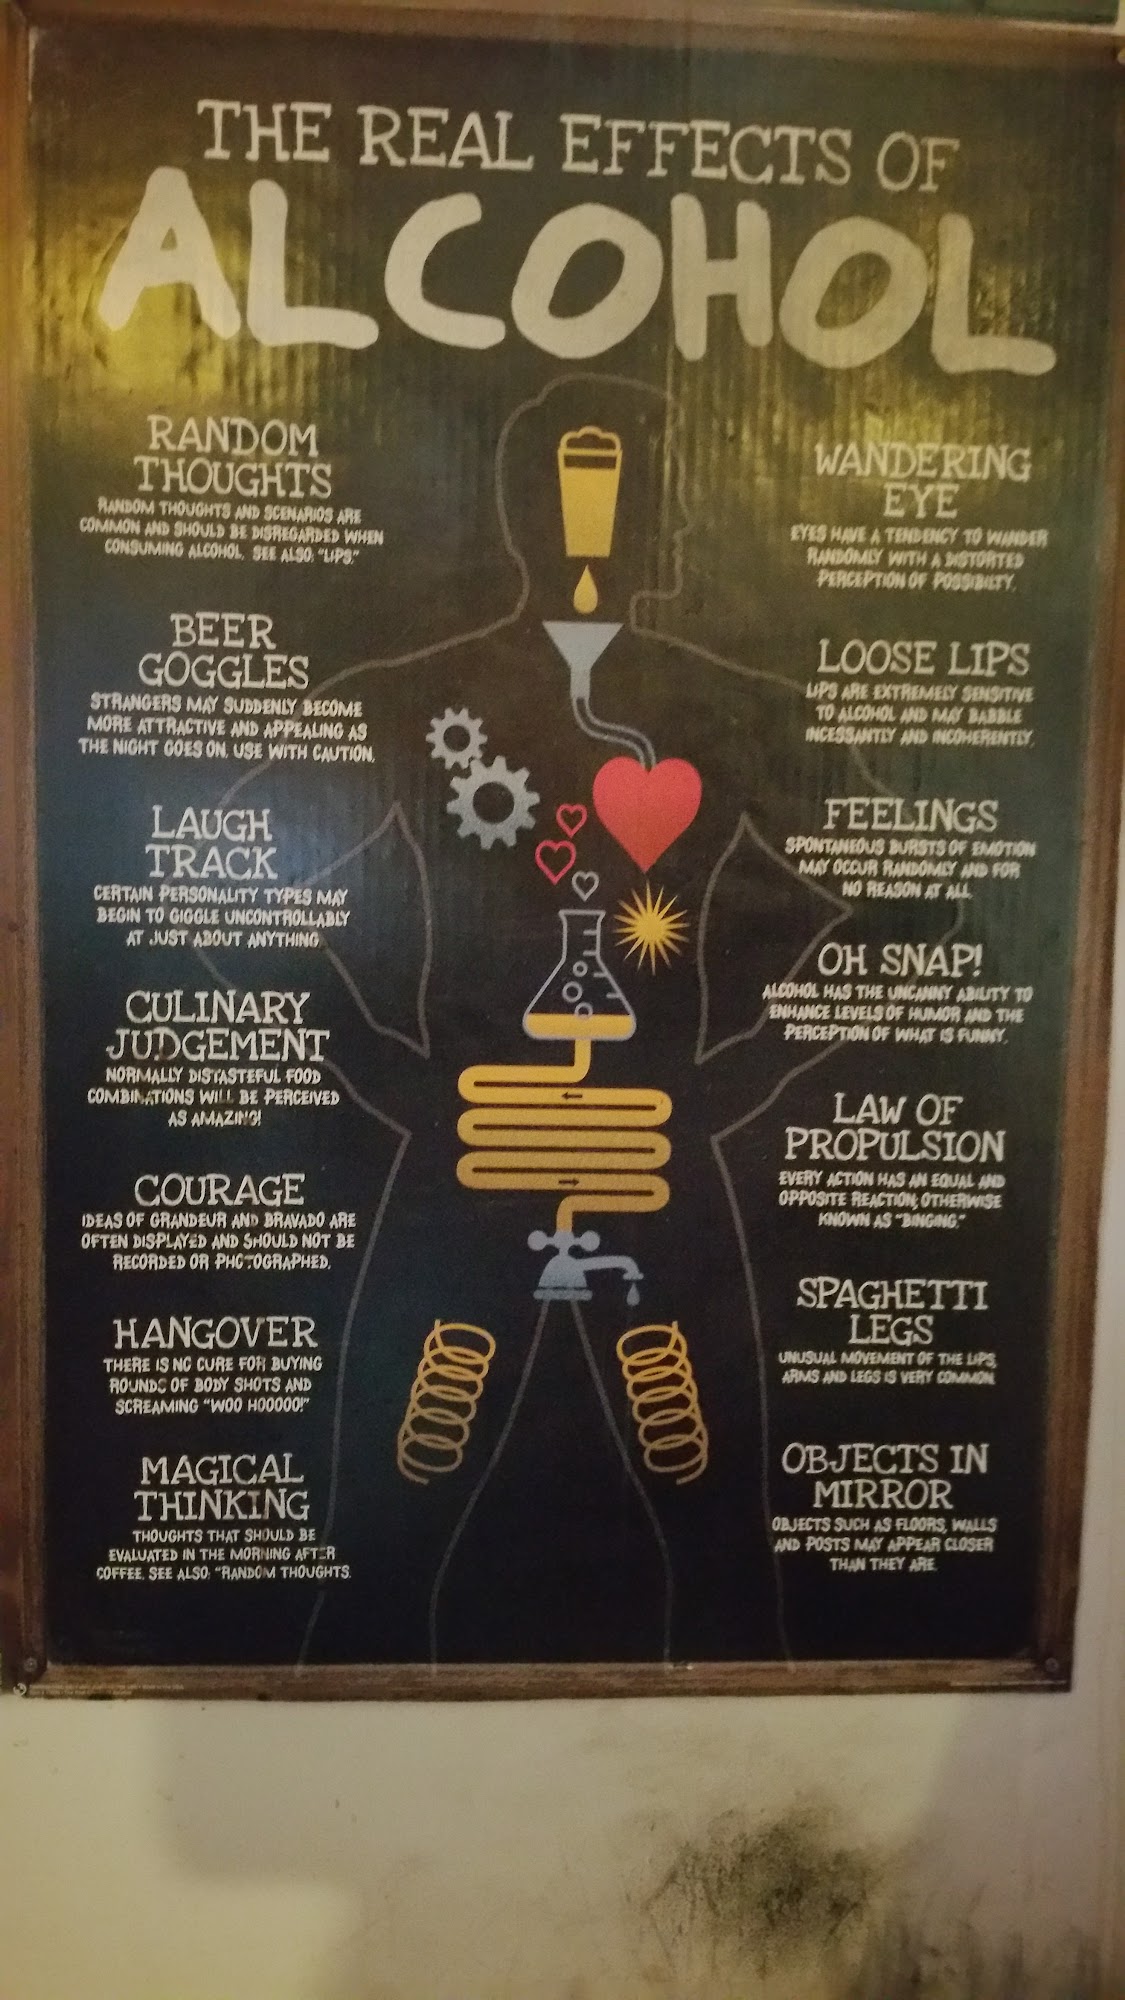 THE REAL EFFECTS OF
ALCOHOL
RANDOM
THOUGHTS
RANDOM THOUGHTS AND SCENARIOS ARE
COMMON AND SHOULD BE DISREGARDED WHEN
CONSUMING ALCOHOL. SEE ALSO: "LIPS."
BEER
GOGGLES
STRANGERS MAY SUDDENLY BECOME
MORE ATTRACTIVE AND APPEALING AS
THE NIGHT GOES ON. USE WITH CAUTION.
LAUGH
TRACK
CERTAIN PERSONALITY TYPES MAY
BEGIN TO GIGGLE UNCONTROLLABLY
AT JUST ABOUT ANYTHING
CULINARY
JUDGEMENT
NORMALLY DISTASTEFUL FOOD
COMBINATIONS WILL BE PERCEIVED
AS AMAZING!
COURAGE
IDEAS OF GRANDEUR AND BRAVADO ARE
OFTEN DISPLAYED AND SHOULD NOT BE
RECORDED OR PHOTOGRAPHED.
HANGOVER
THERE IS NO CURE FOR BUYING
ROUNDS OF BODY SHOTS AND
SCREAMING "WOO HOOOOO!"
MAGICAL
THINKING
THOUGHTS THAT SHOULD BE
EVALUATED IN THE MORNING AFTER
COFFEE. SEE ALSO: "RANDOM THOUGHTS.
WANDERING
EYE
EYES HAVE A TENDENCY TO WANDER
RANDOMLY WITH A DISTORTED
PERCEPTION OF POSSIBILTY.
LOOSE LIPS
LIPS ARE EXTREMELY SENSITIVE
TO ALCOHOL AND MAY BABBLE
INCESSANTLY AND INCOHERENTLY.
FEELINGS
SPONTANEOUS BURSTS OF EMOTION
MAY OCCUR RANDOMLY AND FOR
NO REASON AT ALL.
OH SNAP!
ALCOHOL HAS THE UNCANNY ABILITY TO
ENHANCE LEVELS OF HUMOR AND THE
PERCEPTION OF WHAT IS FUNNY.
LAW OF
PROPULSION
EVERY ACTION HAS AN EQUAL AND
OPPOSITE REACTION; OTHERWISE
KNOWN AS "BINGING."
SPAGHETTI
LEGS
UNUSUAL MOVEMENT OF THE LIPS,
ARMS AND LEGS IS VERY COMMON.
OBJECTS IN
MIRROR
OBJECTS SUCH AS FLOORS, WALLS
AND POSTS MAY APPEAR CLOSER
THAN THEY ARE.